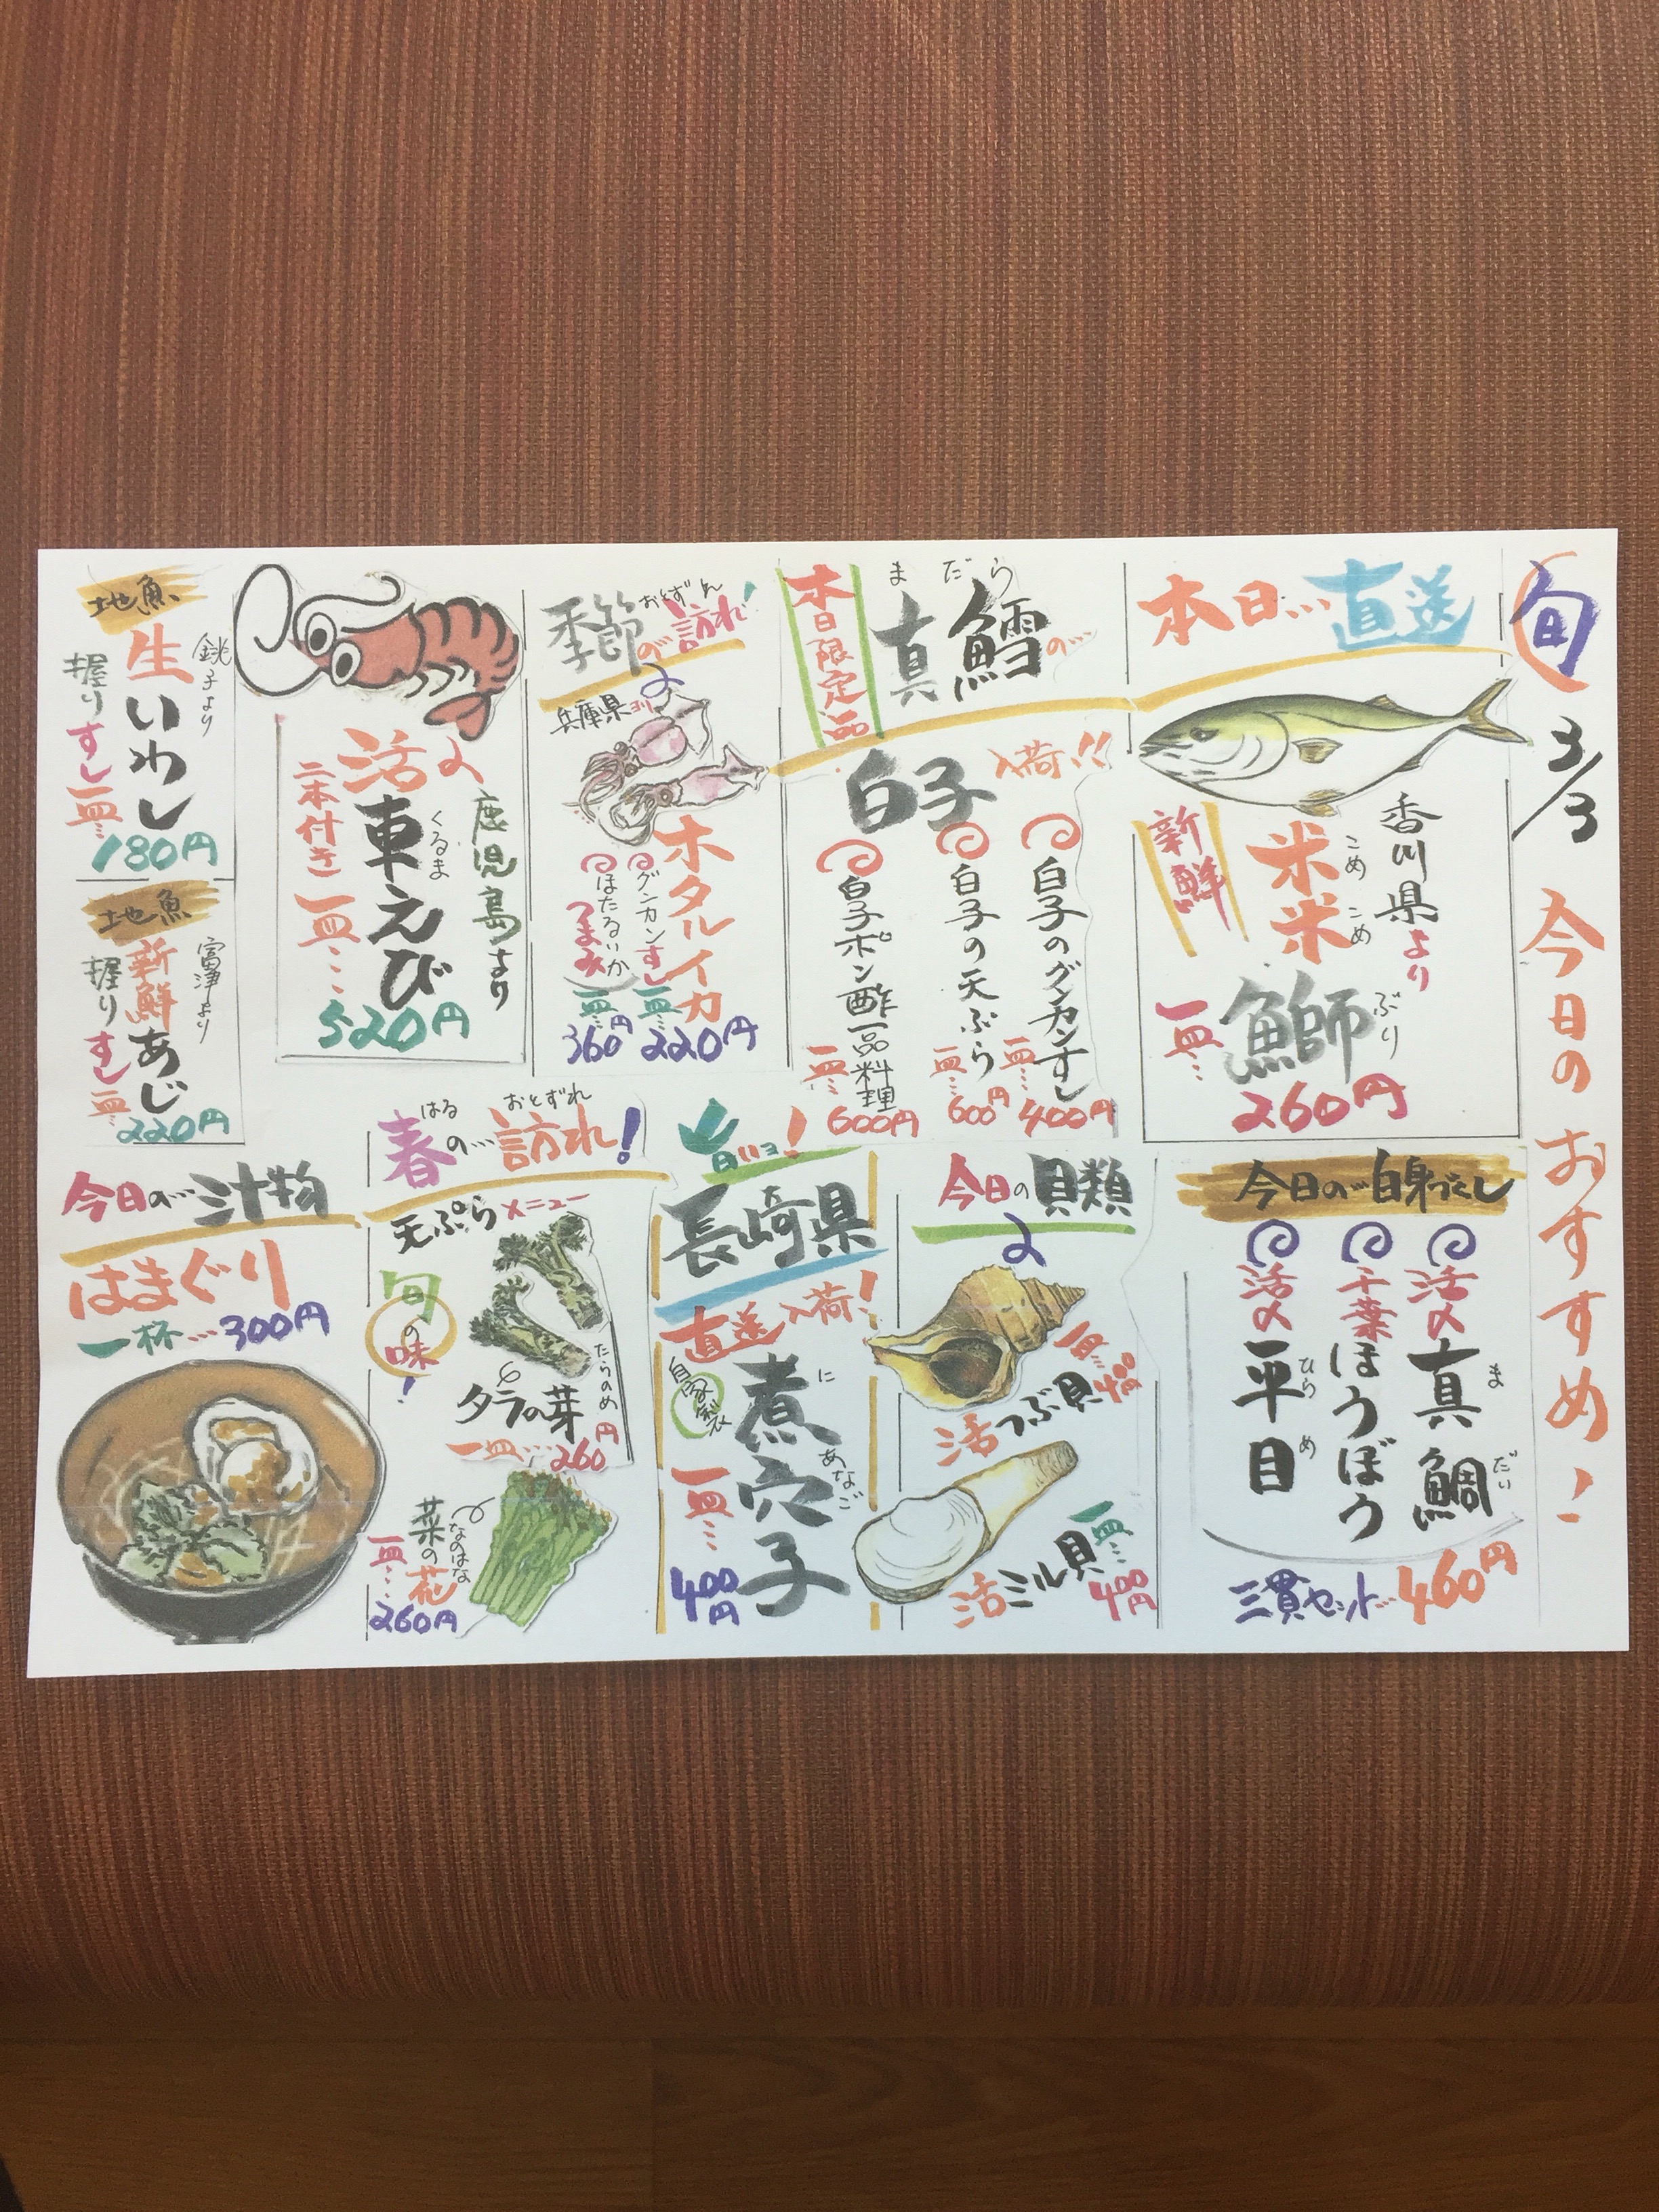 旬
3/3
今日のおすすめ!
本日…直送
香川県より
米米
こめ こめ
鰤
ぶり
新鮮
一皿…
260円
真鱈の…
まだら
本日限定品
白子
入荷!!
白子のグンカンすし
一皿…
400円
白子の天ぷら
一皿…
600円
白子ポン酢一品料理
一皿…
600円
季節の訪れ!
おとずれ
兵庫県ヨリ
ホタルイカ
グンカンすし
一皿…
220円
ほたるいか
つまみ
一皿…
360円
鹿児島より
活〆
車えび
くるま
二本付き
一皿…
520円
地魚
銚子より
生いわし
握りすし一皿…
180円
地魚
富浄より
新鮮あじ
握りすし一皿…
220円
今日の…白身づくし
活〆真鯛
まだい
千葉ほうぼう
活〆平目
ひらめ
三貫セット…460円
今日の貝類
一皿…400円
活つぶ貝
一皿…400円
活ミル貝
旨いョ!
長崎県
直送入荷!
自家製
煮穴子
に あなご
一皿…
400円
春の…訪れ!
はる おとずれ
天ぷらメニュー
旬の味!
タラの芽
たらのめ
一皿…260円
菜の花
なのはな
一皿…
260円
今日の…汁物
はまぐり
一杯…300円